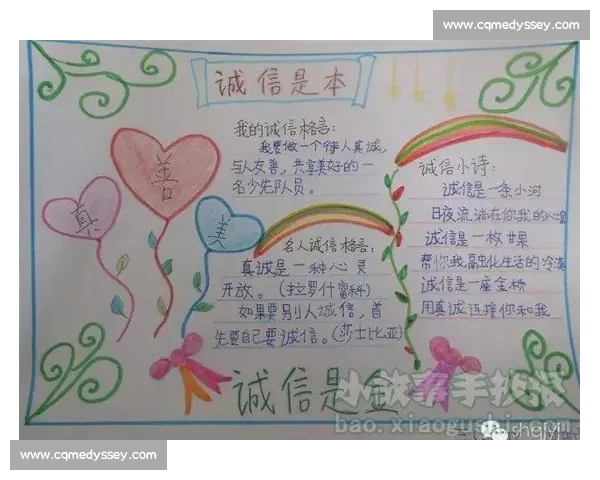 www.cqmedyssey.com
诚信是本
我的诚信格言:
我要做一个待人真诚,
与人友善,共享美好的一
名少先队员。
善
真
美
名人诚信格言:
真诚是一种心灵
开放。(拉罗什富科)
如果要别人诚信,首
先要自己要诚信。(莎士比亚)
诚信小诗:
诚信是一条小河
日夜流淌在你我的心
诚信是一枚甘果
帮你我融化生活的冷漠
诚信是一座金桥
用真诚连接你和我
诚信是金
小故事手抄报
bao.xiaogushi.com
shqjyj
www.cqmedyssey.com